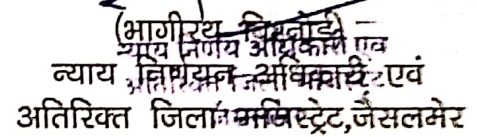 (भागीरथ विश्नोई)
न्याय निर्णय अधिकारी एवं
न्याय निर्णयन अधिकारी एवं
अतिरिक्त जिला मजिस्ट्रेट,जैसलमेर